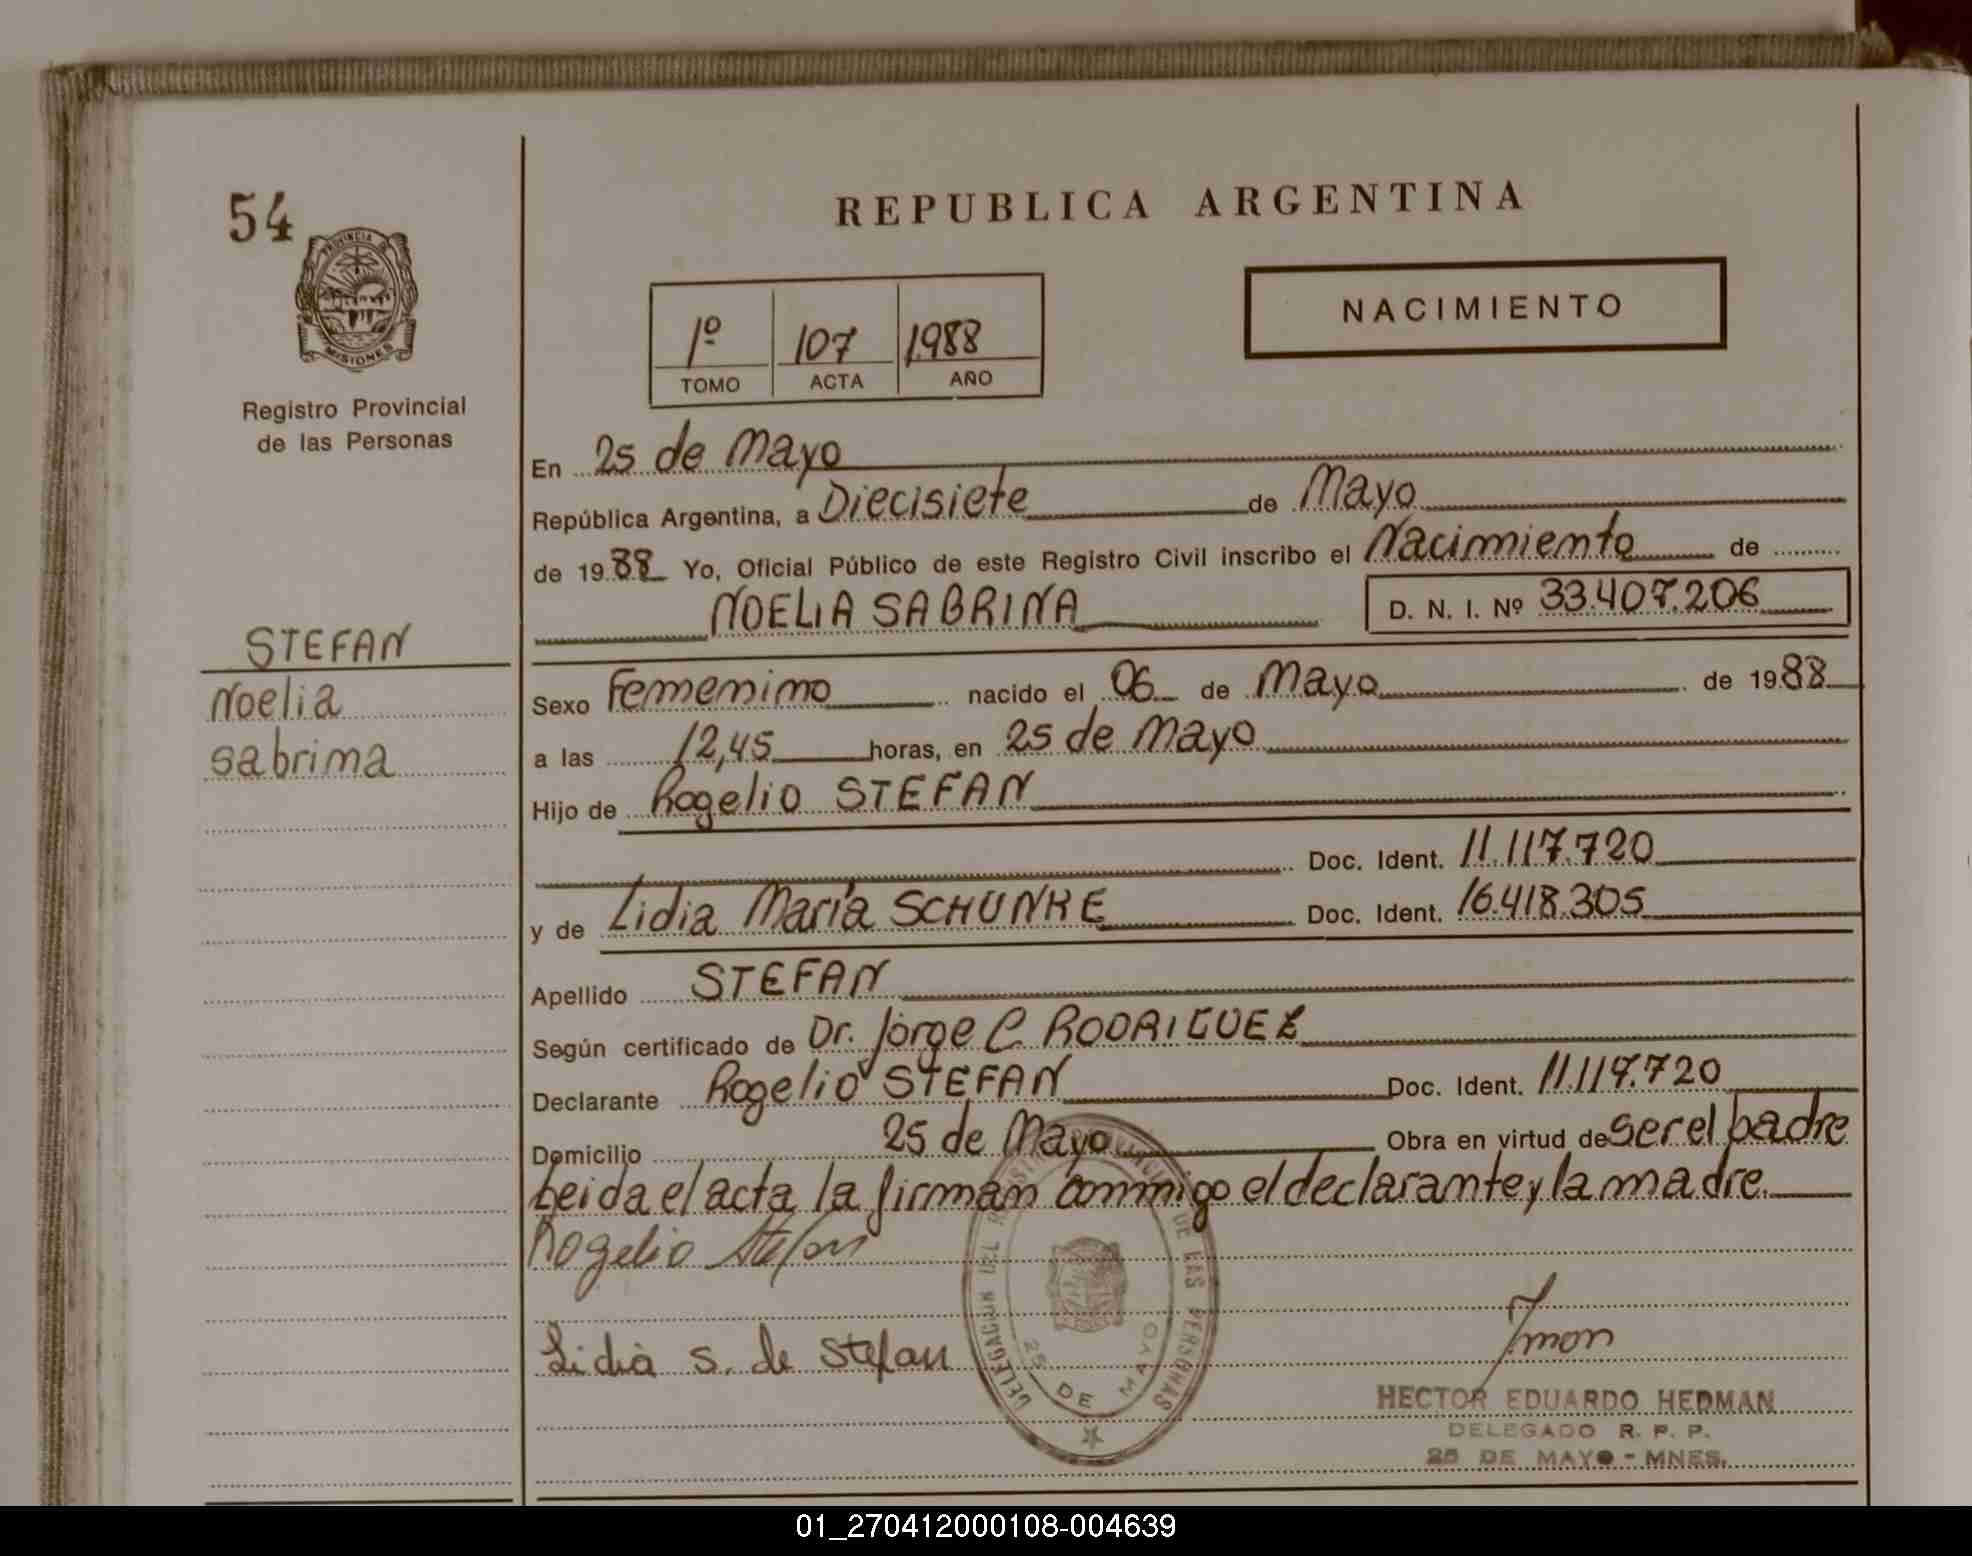 54
REPUBLICA ARGENTINA
PROVINCIA DE
MISIONES
Registro Provincial
de las Personas
NACIMIENTO
1º 107 1988
TOMO ACTA AÑO
En 25 de Mayo
República Argentina, a Diecisiete de Mayo
de 1988 Yo, Oficial Público de este Registro Civil inscribo el Nacimiento de
NOELIA SABRINA D. N. I. Nº 33.407.206
STEFAN
Noelia
Sabrina
Sexo Femenino nacido el 06 de Mayo de 1988
a las 12,45 horas, en 25 de Mayo
Hijo de Rogelio STEFAN
Doc. Ident. 11.117.720
y de Lidia María SCHUNKE Doc. Ident. 16.418.305
Apellido STEFAN
Según certificado de Dr. Jorge C. RODRIGUEZ
Declarante Rogelio STEFAN Doc. Ident. 11.117.720
Domicilio 25 de Mayo Obra en virtud de ser el padre
Leida el acta la firman conmigo el declarante y la madre.
Rogelio Stefan
Lidia S. de Stefan
DELEGACION DEL REGISTRO PROVINCIAL DE LAS PERSONAS
25 DE MAYO
HECTOR EDUARDO HEDMAN
DELEGADO R. P. P.
25 DE MAYO - MNES.
01_270412000108-004639